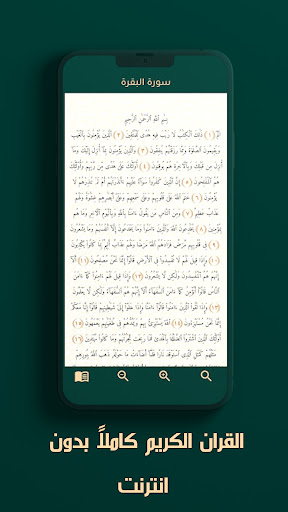 سورة البقرة
بِسْمِ ٱللَّهِ ٱلرَّحْمَٰنِ ٱلرَّحِيمِ
الٓمٓ (١) ذَٰلِكَ ٱلْكِتَٰبُ لَا رَيْبَ فِيهِ هُدًى لِّلْمُتَّقِينَ (٢) ٱلَّذِينَ يُؤْمِنُونَ بِٱلْغَيْبِ
وَيُقِيمُونَ ٱلصَّلَوٰةَ وَمِمَّا رَزَقْنَٰهُمْ يُنفِقُونَ (٣) وَٱلَّذِينَ يُؤْمِنُونَ بِمَا أُنزِلَ إِلَيْكَ وَمَا
أُنزِلَ مِن قَبْلِكَ وَبِٱلْءَاخِرَةِ هُمْ يُوقِنُونَ (٤) أُو۟لَٰئِكَ عَلَىٰ هُدًى مِّن رَّبِّهِمْ وَأُو۟لَٰئِكَ
هُمُ ٱلْمُفْلِحُونَ (٥) إِنَّ ٱلَّذِينَ كَفَرُوا سَوَاءٌ عَلَيْهِمْ ءَأَنذَرْتَهُمْ أَمْ لَمْ تُنذِرْهُمْ لَا
يُؤْمِنُونَ (٦) خَتَمَ ٱللَّهُ عَلَىٰ قُلُوبِهِمْ وَعَلَىٰ سَمْعِهِمْ وَعَلَىٰ أَبْصَٰرِهِمْ غِشَٰوَةٌ وَلَهُمْ
عَذَابٌ عَظِيمٌ (٧) وَمِنَ ٱلنَّاسِ مَن يَقُولُ ءَامَنَّا بِٱللَّهِ وَبِٱلْيَوْمِ ٱلْءَاخِرِ وَمَا هُم
بِمُؤْمِنِينَ (٨) يُخَٰدِعُونَ ٱللَّهَ وَٱلَّذِينَ ءَامَنُوا وَمَا يَخْدَعُونَ إِلَّا أَنفُسَهُمْ وَمَا يَشْعُرُونَ
(٩) فِي قُلُوبِهِم مَّرَضٌ فَزَادَهُمُ ٱللَّهُ مَرَضًا وَلَهُمْ عَذَابٌ أَلِيمٌ بِمَا كَانُوا يَكْذِبُونَ
(١٠) وَإِذَا قِيلَ لَهُمْ لَا تُفْسِدُوا فِي ٱلْأَرْضِ قَالُوا إِنَّمَا نَحْنُ مُصْلِحُونَ (١١) أَلَا
إِنَّهُمْ هُمُ ٱلْمُفْسِدُونَ وَلَٰكِن لَّا يَشْعُرُونَ (١٢) وَإِذَا قِيلَ لَهُمْ ءَامِنُوا كَمَا ءَامَنَ
ٱلنَّاسُ قَالُوا أَنُؤْمِنُ كَمَا ءَامَنَ ٱلسُّفَهَاءُ أَلَا إِنَّهُمْ هُمُ ٱلسُّفَهَاءُ وَلَٰكِن لَّا يَعْلَمُونَ
(١٣) وَإِذَا لَقُوا ٱلَّذِينَ ءَامَنُوا قَالُوا ءَامَنَّا وَإِذَا خَلَوْا إِلَىٰ شَيَٰطِينِهِمْ قَالُوا إِنَّا مَعَكُمْ
إِنَّمَا نَحْنُ مُسْتَهْزِءُونَ (١٤) ٱللَّهُ يَسْتَهْزِئُ بِهِمْ وَيَمُدُّهُمْ فِي طُغْيَٰنِهِمْ يَعْمَهُونَ (١٥)
أُو۟لَٰئِكَ ٱلَّذِينَ ٱشْتَرَوُا ٱلضَّلَٰلَةَ بِٱلْهُدَىٰ فَمَا رَبِحَت تِّجَٰرَتُهُمْ وَمَا كَانُوا مُهْتَدِينَ (١٦)
مَثَلُهُمْ كَمَثَلِ ٱلَّذِي ٱسْتَوْقَدَ نَارًا فَلَمَّا أَضَاءَتْ مَا حَوْلَهُ ذَهَبَ ٱللَّهُ بِنُورِهِمْ
القران الكريم كاملاً بدون
انترنت